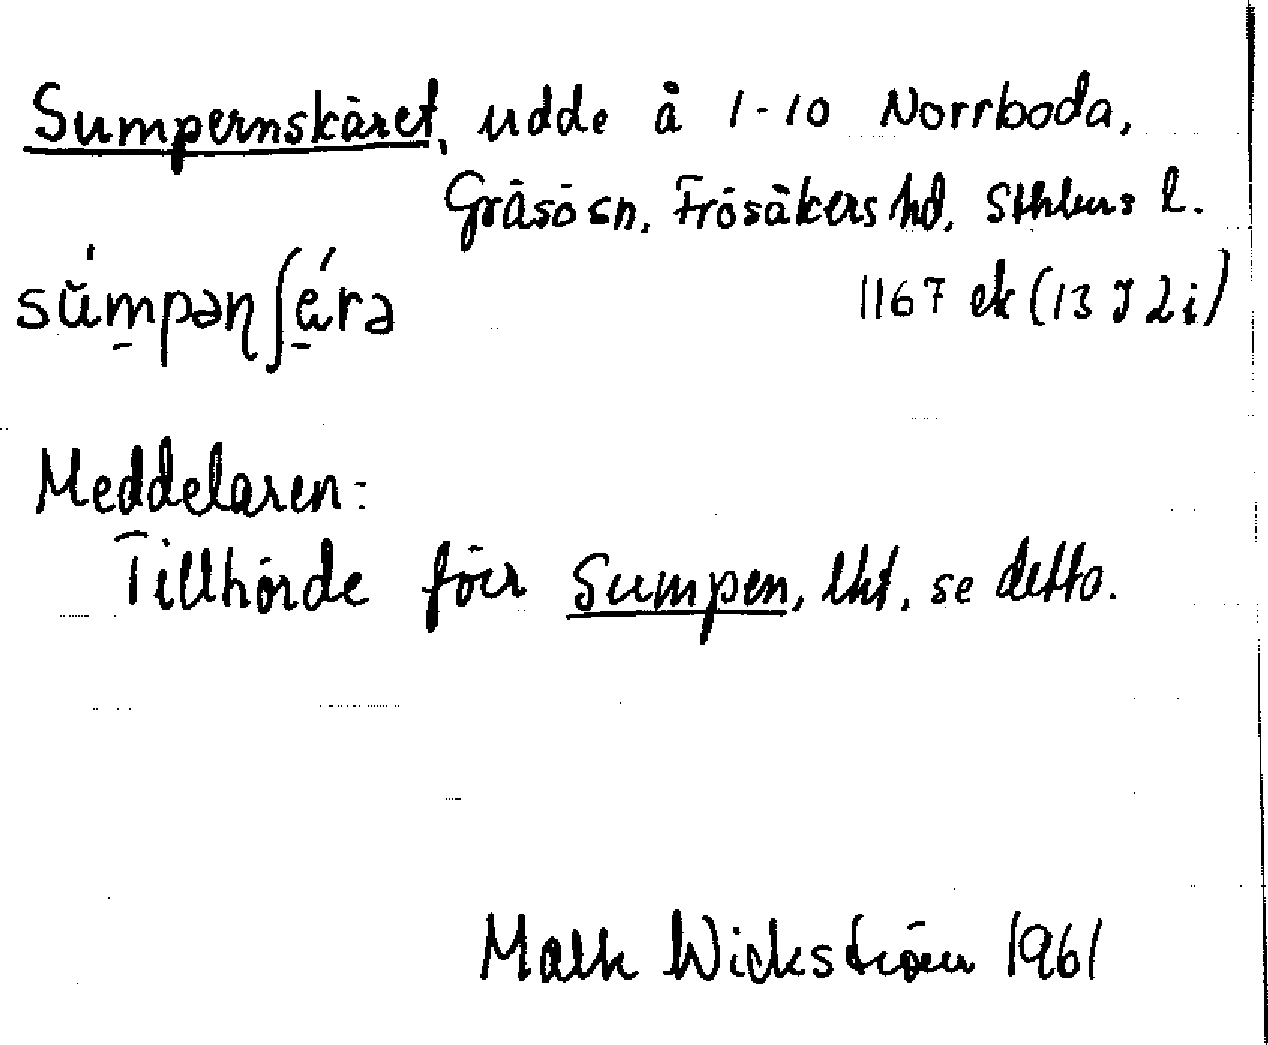 Sumpernskäret, udde å 1-10 Norrboda,
Gräsö sn, Frösåkers hd, Sthlms l.
sŭ́mpəṇʃérə 1167 ek (13 J 2i)
Meddelaren:
Tillhörde förr Sumpen, lht, se detto.
Wickström 1961